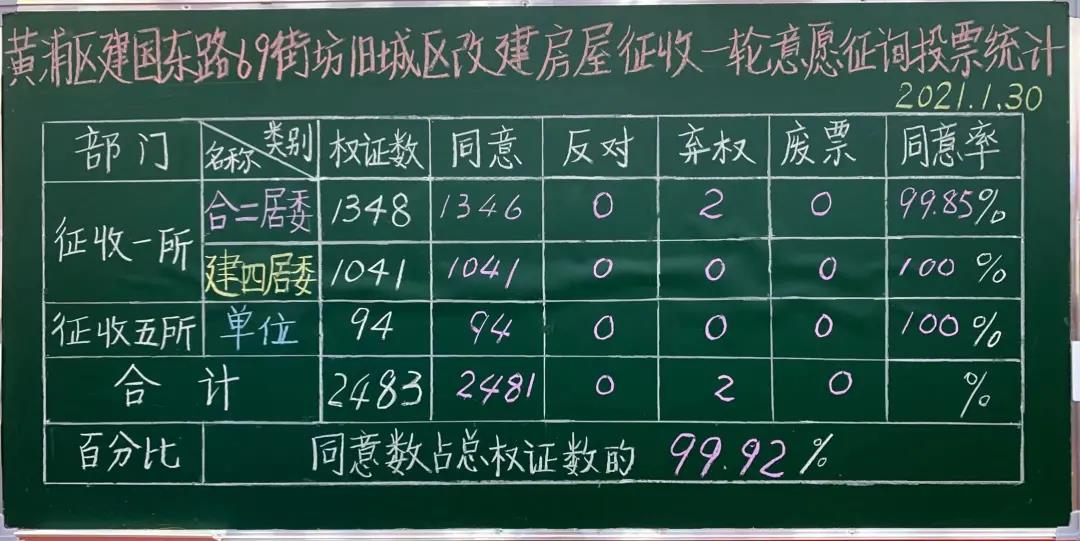 黄浦区建国东路69街坊旧城区改建房屋征收一轮意愿征询投票统计
2021.1.30
部门 名称 类别 权证数 同意 反对 弃权 废票 同意率
征收一所 合二居委 1348 1346 0 2 0 99.85%
建四居委 1041 1041 0 0 0 100%
征收五所 单位 94 94 0 0 0 100%
合计 2483 2481 0 2 0 %
百分比 同意数占总权证数的 99.92%